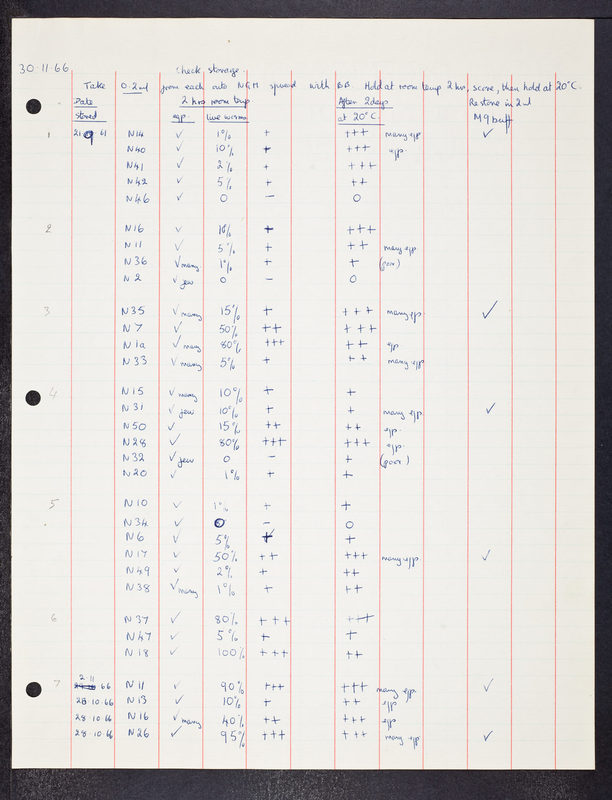 30-11-66
Check storage.
Take 0.2ml from each onto NGM spread with BB Hold at room temp 2 hrs, score, then hold at 20°C.
Date stored 2 hrs room temp After 2 days at 20°C. Restore in 2 ml M9 buff
egp. live worms
1 21 9 61 N14 ✓ 1% + +++ many e/p ✓
N40 ✓ 10% + +++ e/p.
N41 ✓ 2% + +++
N42 ✓ 5% + ++
N46 ✓ 0 − 0
2 N16 ✓ 10% + +++
N11 ✓ 5% + ++ many e/p
N36 ✓ many 1% + + (poor)
N2 ✓ few 0 − 0
3 N35 ✓ many 15% + +++ many e/p. ✓
N7 ✓ 50% ++ +++
N1a ✓ many 80% +++ ++ e/p
N33 ✓ many 5% + ++ many e/p
4 N15 ✓ many 10% + +
N31 ✓ few 10% + + many e/p. ✓
N50 ✓ 15% ++ ++ e/p.
N28 ✓ 80% +++ +++ e/p.
N32 ✓ few 0 − + (poor)
N20 ✓ 1% + +
5 N10 ✓ 1% + +
N34 ✓ 0 − 0
N6 ✓ 5% + +
N17 ✓ 50% ++ +++ many e/p ✓
N49 ✓ 2% + ++
N38 ✓ many 1% + ++
6 N37 ✓ 80% +++ +++
N47 ✓ 5% + +
N18 ✓ 100% +++ ++
7 2·11 66 N11 ✓ 90% +++ +++ many e/p. ✓
28 10 66 N13 ✓ 10% + ++ e/p
28 10 66 N16 ✓ many 40% ++ +++ e/p
28 10 66 N26 ✓ 95% +++ +++ many e/p ✓